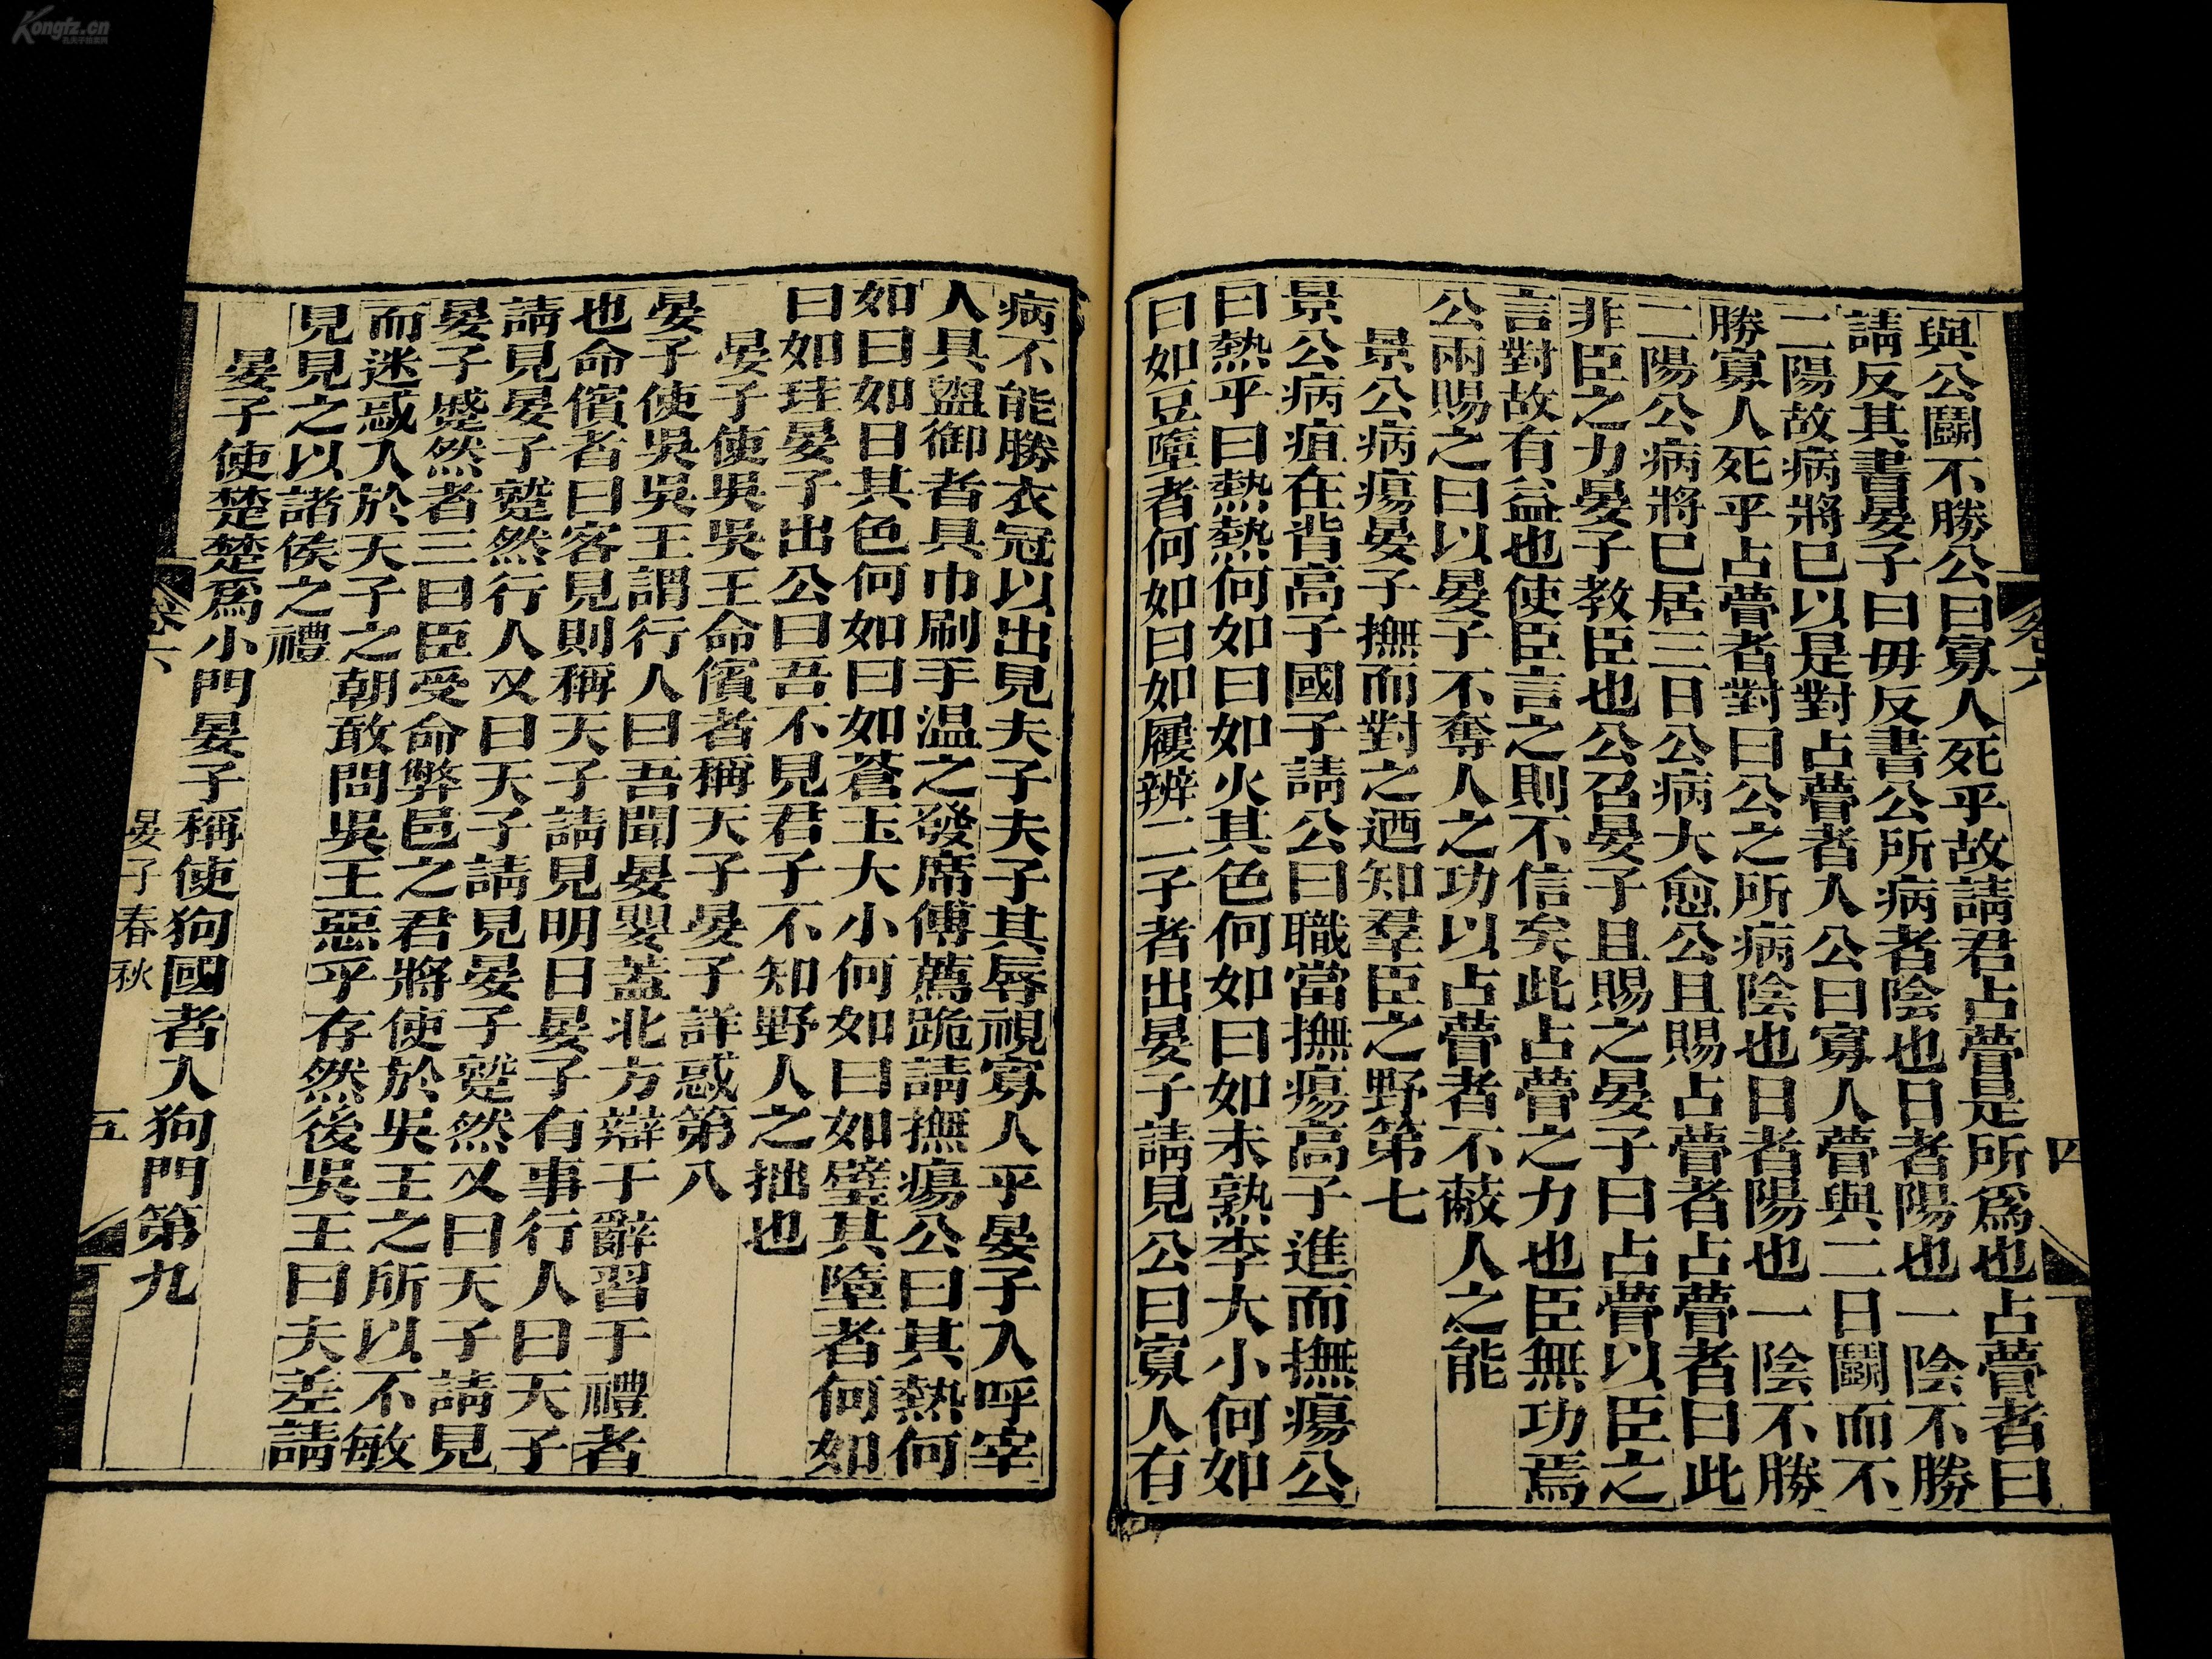 Kongfz.cn
與公鬭不勝公曰寡人死乎故請君占瞢是所爲也占瞢者曰
請反其書晏子曰毋反書公所病者陰也日者陽也一陰不勝
二陽故病將已以是對占瞢者入公曰寡人瞢與二日鬭而不
勝寡人死乎占瞢者對曰公之所病陰也日者陽也一陰不勝
二陽公病將已居三日公病大愈公且賜占瞢者占瞢者曰此
非臣之力晏子教臣也公召晏子且賜之晏子曰占瞢以臣之
言對故有益也使臣言之則不信矣此占瞢之力也臣無功焉
公兩賜之曰以晏子不奪人之功以占瞢者不蔽人之能
景公病瘍晏子撫而對之迺知羣臣之野第七
景公病疽在背高子國子請公曰職當撫瘍高子進而撫瘍公
曰熱乎曰熱熱何如曰如火其色何如曰如未熟李大小何如
曰如豆墮者何如曰如屨辨二子者出晏子請見公曰寡人有
卷六
四
病不能勝衣冠以出見夫子夫子其辱視寡人乎晏子入呼宰
人具盥御者具巾刷手温之發席傅薦跪請撫瘍公曰其熱何
如曰如日其色何如曰如蒼玉大小何如曰如璧其墮者何如
曰如珪晏子出公曰吾不見君子不知野人之拙也
晏子使吳吳王命儐者稱天子晏子詳惑第八
晏子使吳吳王謂行人曰吾聞晏嬰蓋北方辯于辭習于禮者
也命儐者曰客見則稱天子請見明日晏子有事行人曰天子
請見晏子蹵然行人又曰天子請見晏子蹵然又曰天子請見
晏子蹙然者三曰臣受命弊邑之君將使於吳王之所以不敏
而迷惑入於天子之朝敢問吳王惡乎存然後吳王曰夫差請
見見之以諸侯之禮
晏子使楚楚爲小門晏子稱使狗國者入狗門第九
卷六
晏子春秋
五